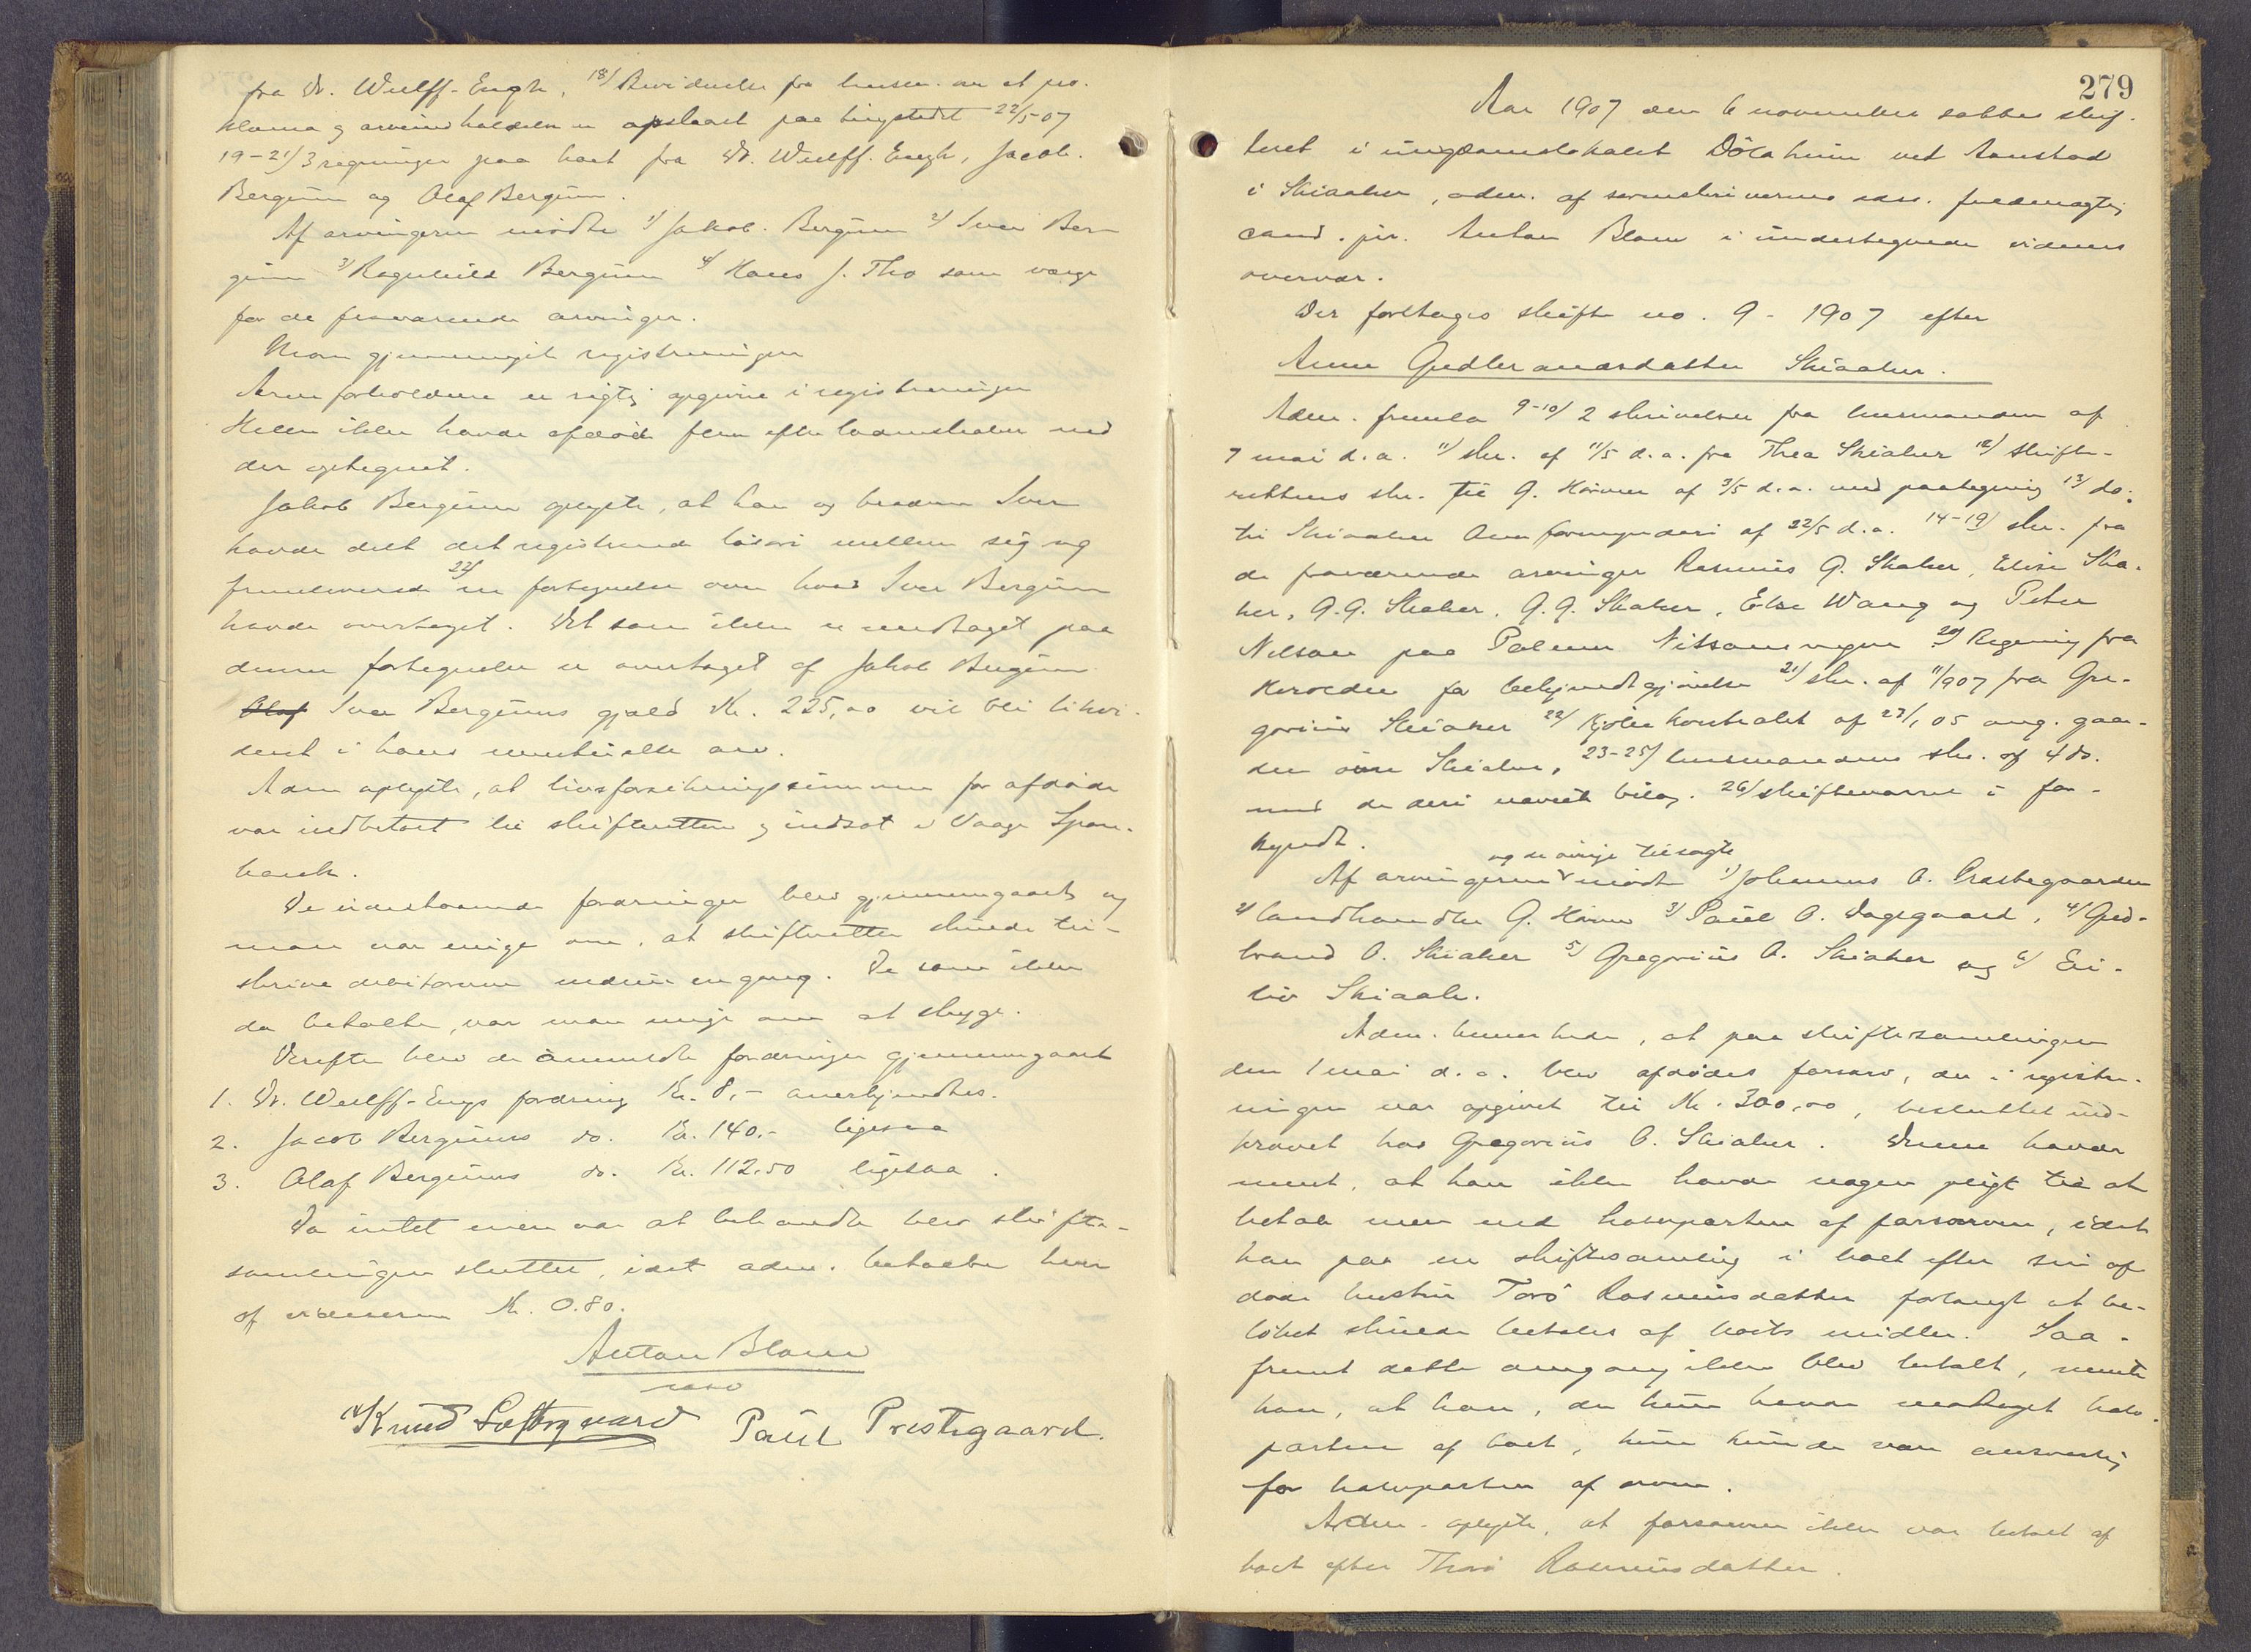 fra Dr. Wulff-Engh, 18/ Bevidnelse fra lensm. om at pro-
klama og arveindkaldelse er opslaaet paa tingstedet 22/5-07
19-21/ 3 regninger paa boet fra Dr. Wulff-Engh, Jacob
Bergum og Olaf Bergum.
Af arvingerne mødte 1/ Jakob Bergum 2/ Iver Ber-
gum 3/ Ragnhild Bergum 4/ Hans J. Tho som værge
for de fraværende arvinger.
Man gjennemgik registreringen
Arveforholdene er rigtig opgivne i registreringen
Heller ikke havde afdøde flere efterladenskaber end
der optegnet.
Jakob Bergum oplyste, at han og broderen Iver
havde delt det registrerede løsøre mellem sig og
fremleverede 22/ en fortegnelse over hvad Iver Bergum
havde overtaget. Det som ikke er medtaget paa
denne fortegnelse er overtaget af Jakob Bergum
Olaf Iver Bergums gjæld Kr. 225,00 vil bli likvi-
dert i hans eventuelle arv.
Adm. oplyste, at livsforsikringssummen for afdøde
var indbetalt til skifteretten og indsat i Vaage Spare-
bank.
De udestaaende fordringer blev gjennemgaaet og
man var enige om, at skifteretten skulde til-
skrive debitorerne endnu engang. De som ikke
da betalte, var man enige om at stryge.
Derefter blev de anmeldte fordringer gjennemgaaet
1. Dr. Wulff-Enghs fordring Kr. 8,- anerkjendtes.
2. Jacob Bergums do. Kr. 140.- ligesaa
3. Olaf Bergums do. Kr. 112.50 ligesaa.
Da intet mere var at behandle blev skifte-
samlingen sluttet, idet adm. betalte hver
af vidnerne Kr. 0.80.
Anton Blom
Knud Loftsgaard Paul Prestegaard.
279
Aar 1907 den 6 november sattes skif-
teret i ungdomslokalet Dølaheim ved Aanstad
i Skiaaker, adm. af sorenskriverens edsv. fuldmægtig
cand. jur. Anton Blom i undertegnede vidners
overvær.
Der foretoges skifte no. 9 - 1907 efter
Anne Gudbrandsdatter Skiaaker.
Adm. fremla 9-10/ 2 skrivelser fra lensmanden af
7 mai d.a. 11/ skr. af 11/5 d.a. fra Thea Skiaker 12/ skifte-
rettens skr. til G. Hørven af 3/5 d.a. med paategning 13/ do.
til Skiaaker overformynderi af 22/5 d.a. 14-19/ skr. fra
de fraværende arvinger Rasmus G. Skaker, Elise Ska-
ker, G.G. Skaker, G.G. Skaker, Else Wang og Peter
Nelson paa Palmer Nilssons vegne 20/ Regning fra
herolden for bekjendtgjørelse 21/ skr. af 11/907 fra Gre-
gorius Skiaker 22/ Kjøbekontrakt af 27/1 05 ang. gaar-
den øvre Skiaker, 23-25/ lensmandens skr. af 4 ds.
med de deri nævnte bilag. 26/ skiftevarsel i for-
kyndt.
Af arvingerne og de øvrige tilsagte mødte 1/ Johannes O. Prestegaarden
2/ landhandler G. Hørven 3/ Paul O. Dagsgaard, 4/ Gud-
brand O. Skiaker 5/ Gregorius O. Skiaker og 6/ Ei-
liv Skiaak.
Adm. bemerkede, at paa skiftesamlingen
den 1 mai d.a. blev afdødes farsarv, der i registre-
ringen var opgivet til Kr. 300,00, besluttet ind-
krævet hos Gregorius O. Skiaker. Denne havde
ment, at han ikke havde nogen pligt til at
betale mer end halvparten af farsarven, idet
han paa en skiftesamling i boet efter sin af-
døde hustru Torø Rasmusdatter forlangt at be-
løbet skulde betales af boets midler. Saa-
fremt dette dengang ikke blev betalt, mente
han, at han, der kun havde modtaget halv-
parten af boet, kun kunde være ansvarlig
for halvparten af arven.
Adm. oplyste, at farsarven ikke var betalt af
boet efter Thorø Rasmusdatter.